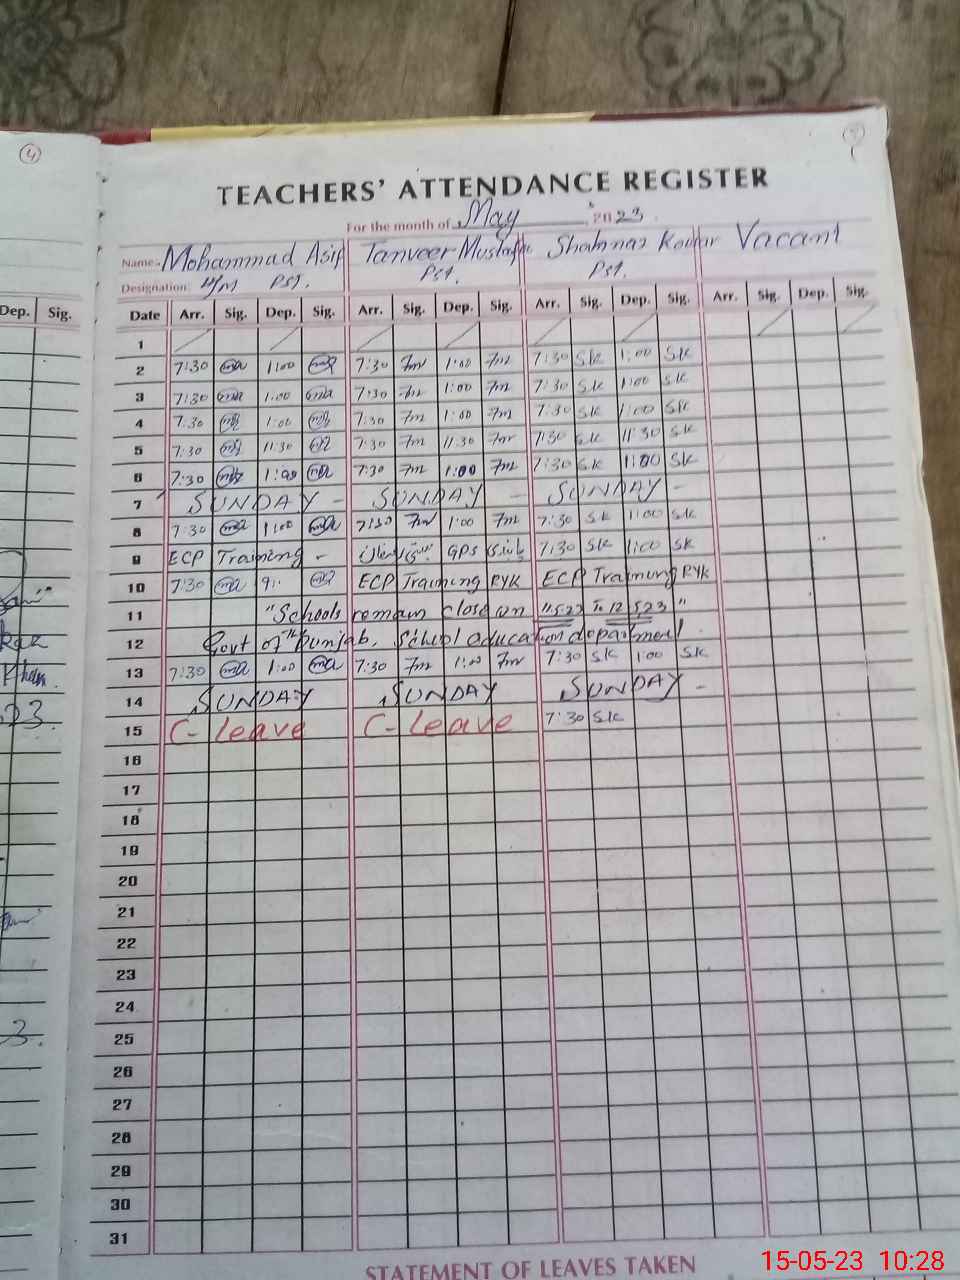 4
TEACHERS' ATTENDANCE REGISTER
For the month of May 2023
Name:- Mohammad Asif Tanveer Mustafa Shahnaz Kousar Vacant
Designation: H/M PST. PST. PST.
Dep. Sig. Date Arr. Sig. Dep. Sig. Arr. Sig. Dep. Sig. Arr. Sig. Dep. Sig. Arr. Sig. Dep. Sig.
1
2 7:30 ma 1:00 ma 7:30 Tm 1:00 Tm 7:30 SK 1:00 SK
3 7:30 ma 1:00 ma 7:30 Tm 1:00 Tm 7:30 SK 1:00 SK
4 7:30 ma 1:00 ma 7:30 Tm 1:00 Tm 7:30 SK 1:00 SK
5 7:30 ma 11:30 ma 7:30 Tm 11:30 Tm 7:30 SK 11:30 SK
6 7:30 ma 1:00 ma 7:30 Tm 1:00 Tm 7:30 SK 1:00 SK
7 SUNDAY - SUNDAY - SUNDAY -
8 7:30 ma 1:00 ma 7:30 Tm 1:00 Tm 7:30 SK 1:00 SK
9 ECP Training - GPS 7:30 SK 1:00 SK
10 7:30 ma 9: ma ECP Training RYK ECP Training RYK
11 "Schools remain close on 11 5 23 To 12 5 23"
12 Govt of The Punjab. School education department.
13 7:30 ma 1:00 ma 7:30 Tm 1:00 Tm 7:30 SK 1:00 SK
14 SUNDAY SUNDAY SUNDAY -
15 C- Leave C- Leave 7:30 SK
16
17
18
19
20
21
22
23
24
25
26
27
28
29
30
31
STATEMENT OF LEAVES TAKEN
15-05-23 10:28